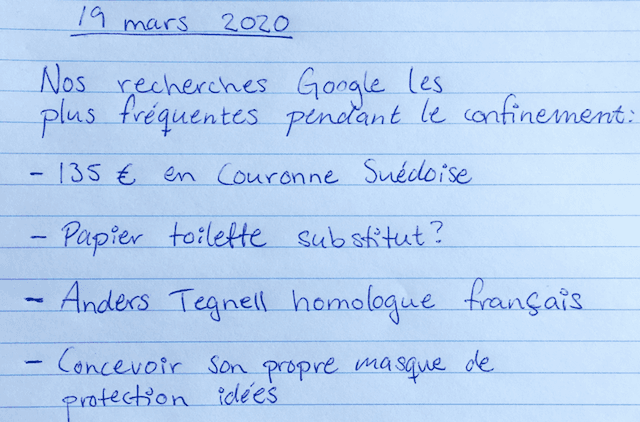 19 mars 2020
Nos recherches Google les
plus fréquentes pendant le confinement:
- 135 € en Couronne Suédoise
- Papier toilette substitut?
- Anders Tegnell homologue français
- Concevoir son propre masque de
protection idées